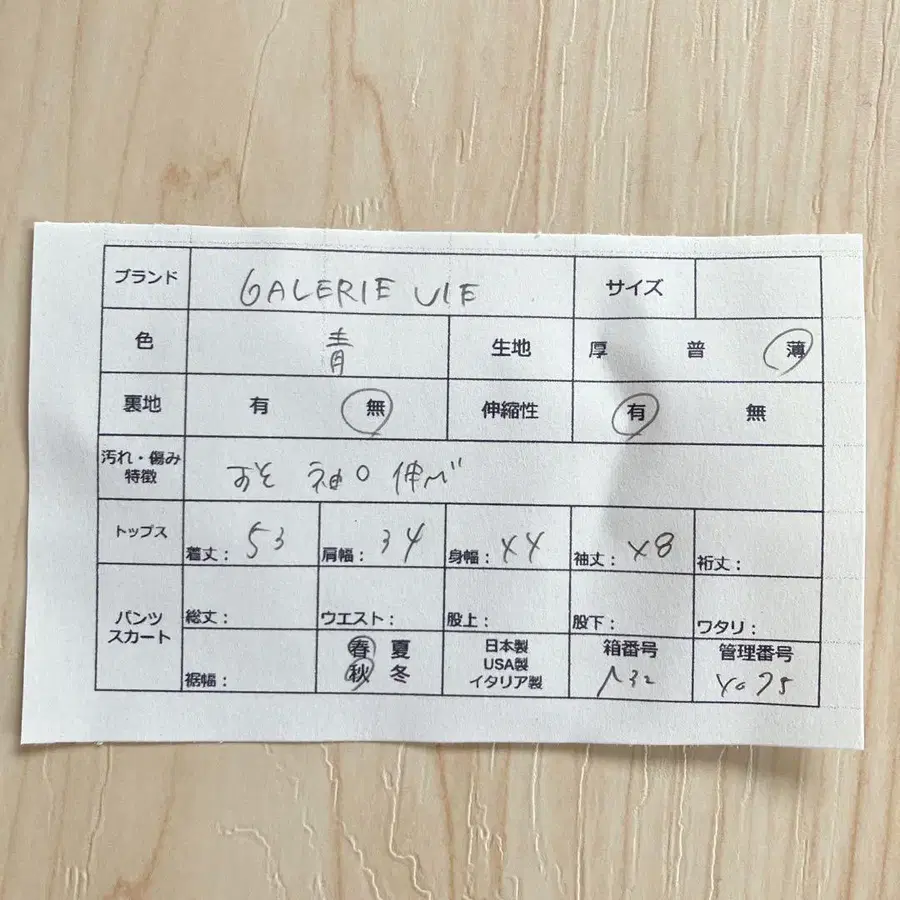 ブランド GALERIE VIE サイズ
色 青 生地 厚 普 薄
裏地 有 無 伸縮性 有 無
汚れ・傷み
特徴 袖口 伸び
トップス 着丈: 53 肩幅: 34 身幅: 44 袖丈: 48 裄丈:
パンツ
スカート 総丈: ウエスト: 股上: 股下: ワタリ:
裾幅: 春 夏
秋 冬
日本製
USA製
イタリア製
箱番号
管理番号